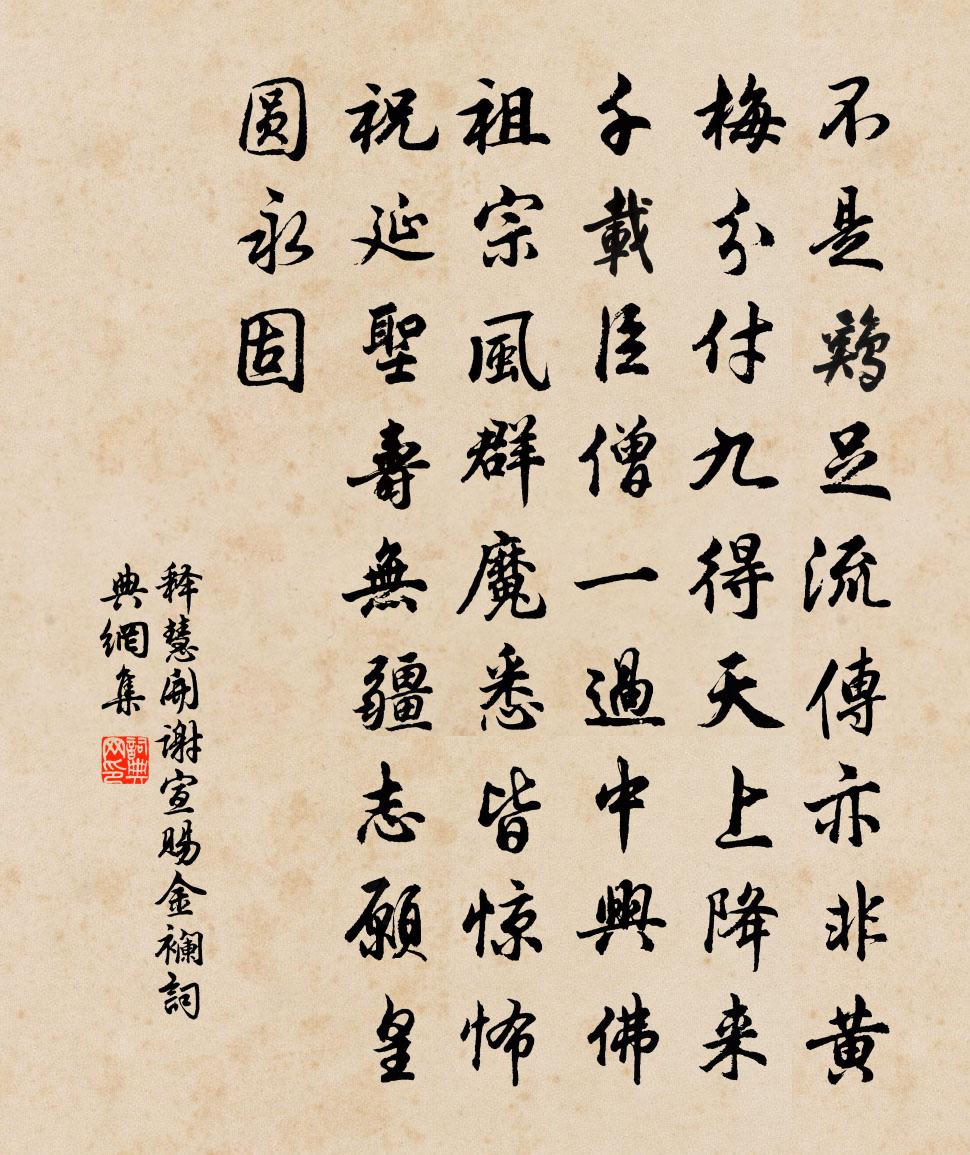 不是鷄足流傳亦非黃
梅分付九得天上降来
千載臣僧一過中興佛
祖宗風群魔悉皆惊怖
祝延聖壽無疆志願皇
圓永固
释慧開谢宣賜金襴詞
典網集
詞典
网印